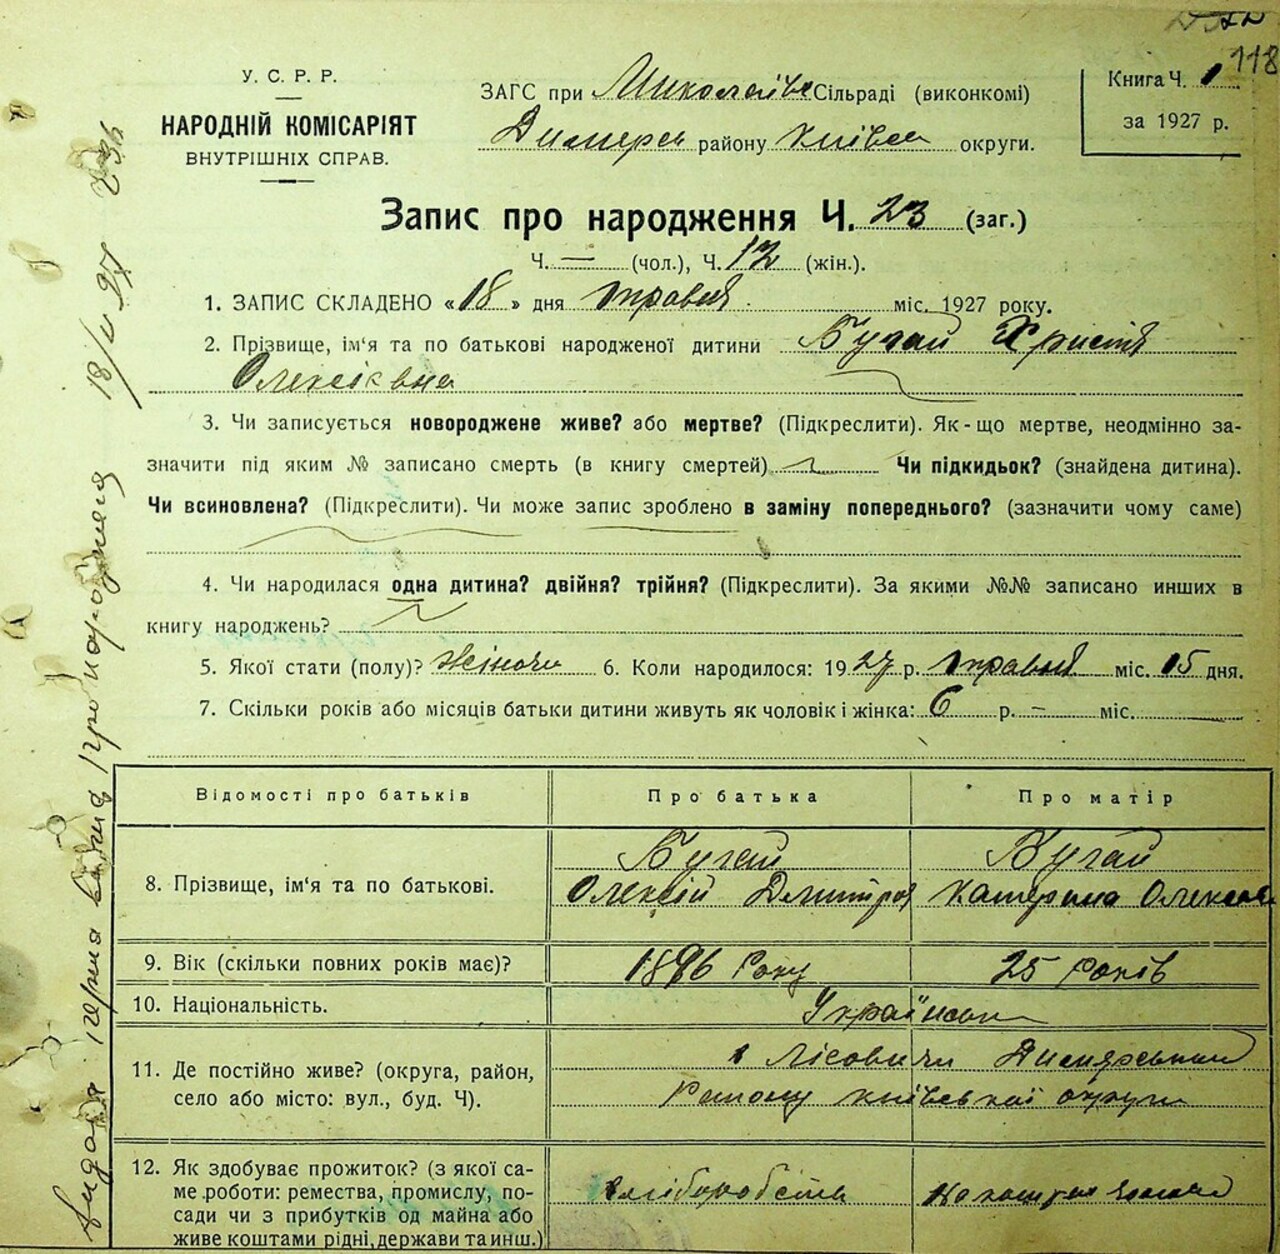 118
У. С. Р. Р.
НАРОДНІЙ КОМІСАРІЯТ
ВНУТРІШНІХ СПРАВ.
ЗАГС при Миколаївс Сільраді (виконкомі)
Димерск району Київск округи.
Книга Ч. 1
за 1927 р.
Запис про народження Ч. 23 (заг.)
Ч. — (чол.), Ч. 12 (жін.).
1. ЗАПИС СКЛАДЕНО «18» дня травня міс. 1927 року.
2. Прізвище, ім'я та по батькові народженої дитини Бугай Христя
Олексіївна
3. Чи записується новороджене живе? або мертве? (Підкреслити). Як-що мертве, неодмінно за-
значити під яким № записано смерть (в книгу смертей) Чи підкидьок? (знайдена дитина).
Чи всиновлена? (Підкреслити). Чи може запис зроблено в заміну попереднього? (зазначити чому саме)
4. Чи народилася одна дитина? двійня? трійня? (Підкреслити). За якими №№ записано инших в
книгу народжень?
5. Якої стати (полу)? Жіночи 6. Коли народилося: 1927 р. травня міс. 15 дня.
7. Скільки років або місяців батьки дитини живуть як чоловік і жінка: 6 р. – міс.
Відомості про батьків Про батька Про матір
8. Прізвище, ім'я та по батькові. Бугай Бугай
Олексій Дмитров Катерина Олексов
9. Вік (скільки повних років має)? 1896 Року 25 Років
10. Національність. Українськ
11. Де постійно живе? (округа, район, в Лісовичи Димерський
село або місто: вул., буд. Ч). Району київської округи
12. Як здобуває прожиток? (з якої са-
ме роботи: ремества, промислу, по- хліборобств
сади чи з прибутків од майна або
живе коштами рідні, держави та инш.)
про народження 18/V 27